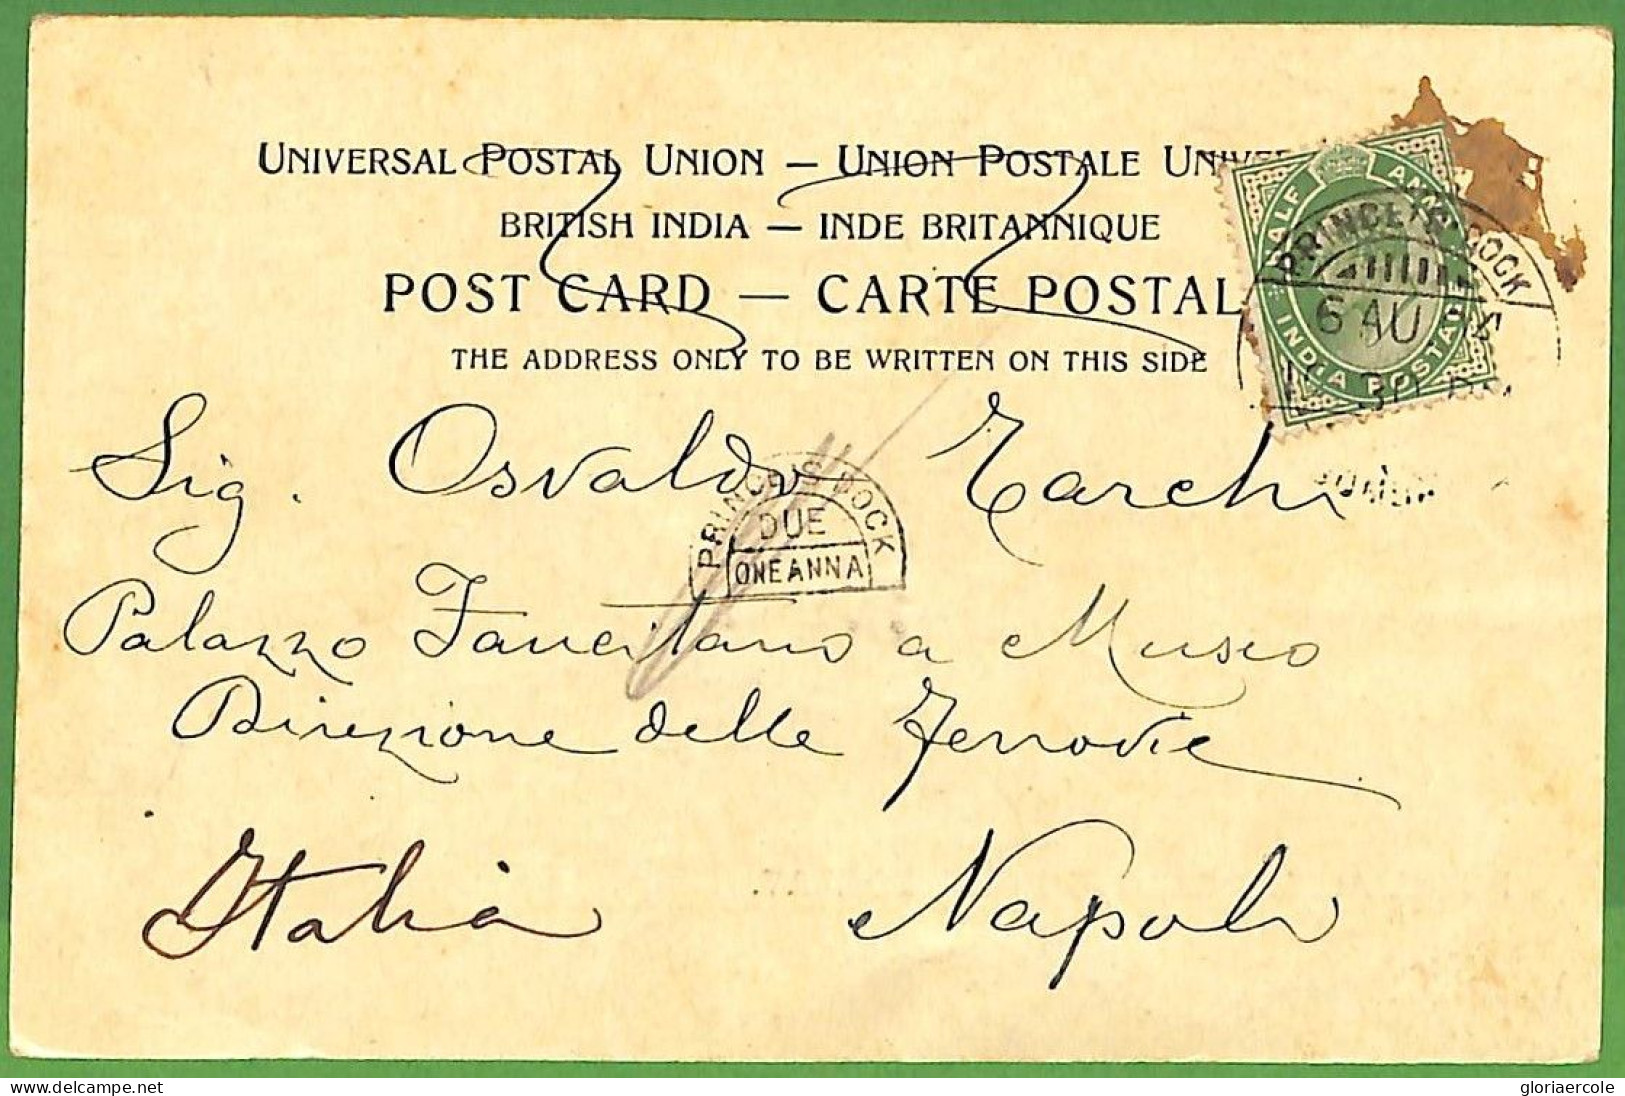 UNIVERSAL POSTAL UNION — UNION POSTALE
BRITISH INDIA — INDE BRITANNIQUE
POST CARD — CARTE POSTAL
THE ADDRESS ONLY TO BE WRITTEN ON THIS SIDE
HALF ANNA
INDIA POSTAGE
PRINCE'S DOCK
6 AU
30 PM
Sig. Osvaldo Tarchi
PRINCE'S DOCK
DUE
ONE ANNA
Palazzo a Museo
Direzione delle Ferrovie
Italia Napoli
gloriaercole
Delcampe.net